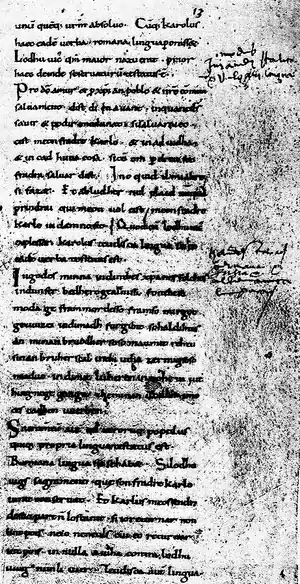 13
unū quēq; urm̄ absoluo. Cūq; karolus
haec eadē uerba romana lingua porasset.
Lodhuuic qm̄ maior natu erat. prior
haec deinde se seruaturū testatus ē.
Pro dō amur & p xp̄ian poblo & nrō comun
saluament. dist di en auant. inquantdš
sauir & podir me dunat. sisaluaraieo.
cist meon fradre karlo. & in adiudha
& in cad huna cosa. sicū om p dreit son
fradra saluar dist. Ino quid il mialtre
si faz&. Et abludher nul plaid nūquā
prindrai qui meon uol cist meonfradre
karle in damno sit. Quod cū lodhuuic
explesset. karolus teudisca lingua sic ec
eadē uerba testatus est.
In godes minna indinthes xp̄anes folches
indunser bedhero gealtnissi. fonthese
moda ge frammordesso framso mirgot
geuuizci indimadh furgibit sohaldihtes
an minan bruodher soso manmit rehtu
sinan bruher scal inthi utha zermigsoso
maduo. indimit luheren in nohein iut
hing nege gango. zheminan uuillon imo
ce scadhen uuerhen.
Sacramentū autē qd utrorūq; populus
quiq; propria lingua testatus est.
Romana lingua sic se hab&. Silodhu
uigs sagrament. que son fradre karlo
iurat conseruat. Et karlus meossendra
desuo partñ lostanit. si ioreturnar non
lint pois. neio neneuls cui eo returnar
int pois. in nulla aiudha contra lodhu
uuig nunli iuer. Teudisca autē lingua